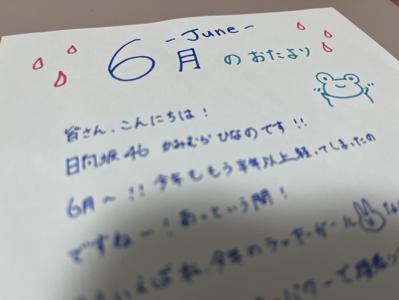 -June-
6月のおたより
皆さん、こんにちは!
日向坂46 かみむらひなのです!!
6月〜!! 今年ももう半年以上経ってしまったの
ですねー! あっという間!
いえば私、今年のラッキーガール